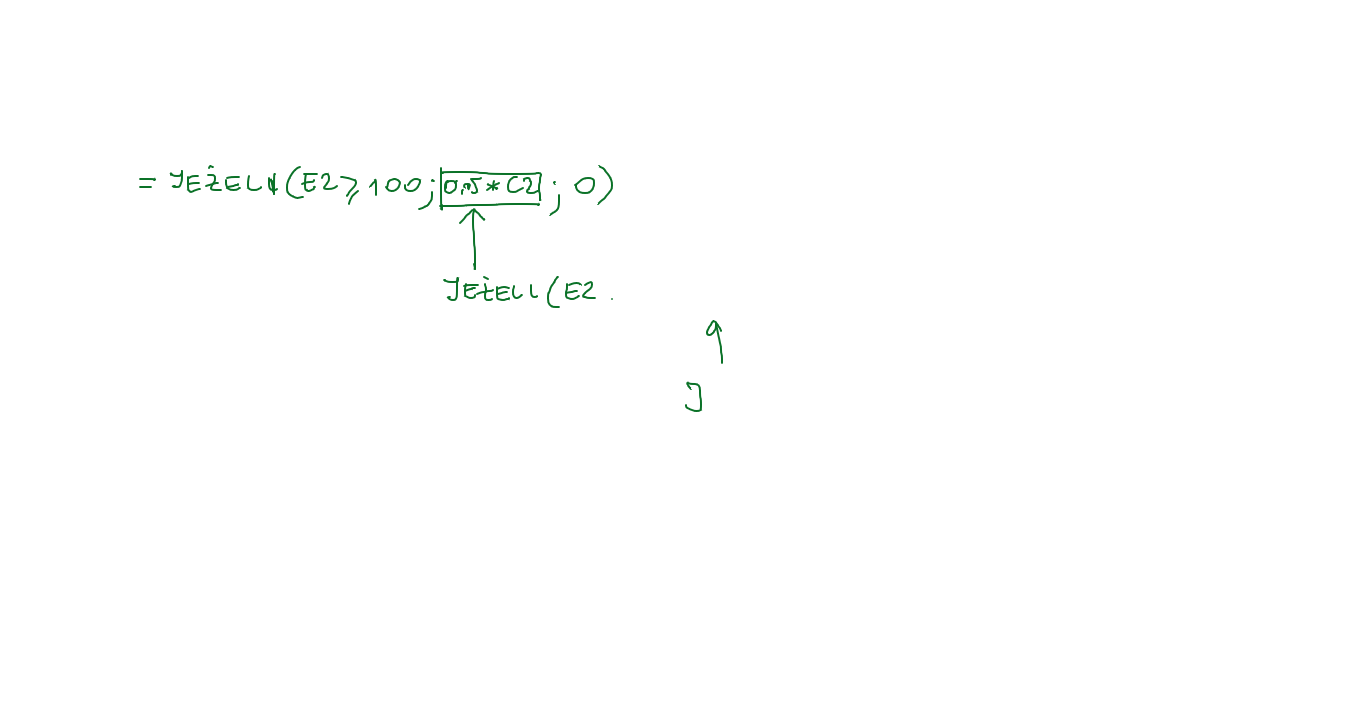 = JEŻELI(E2⩾100; 0,5*C2; 0)
JEŻELI(E2.
J